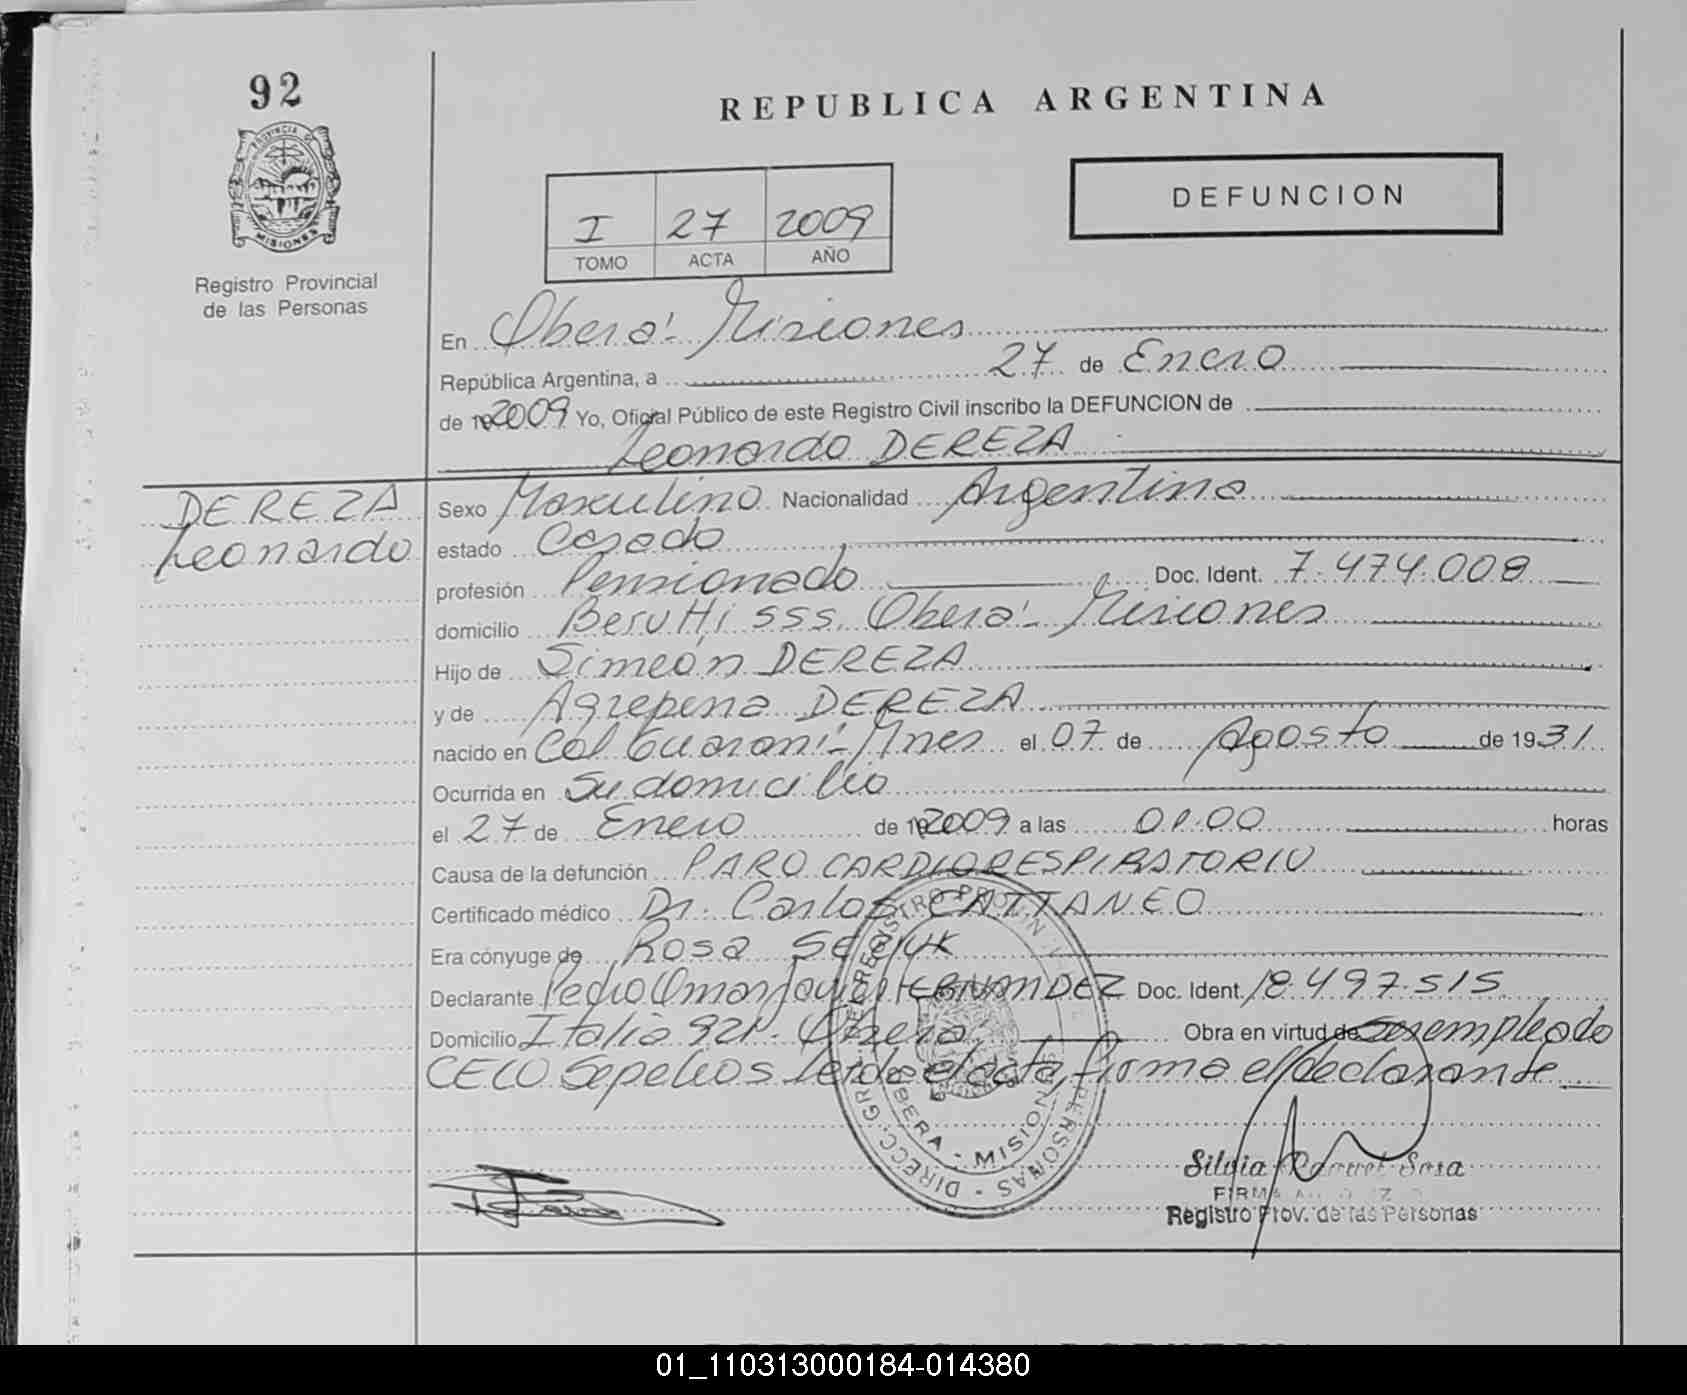 92
REPUBLICA ARGENTINA
PROVINCIA DE
MISIONES
Registro Provincial
de las Personas
DEFUNCION
I 27 2009
TOMO ACTA AÑO
En Oberá - Misiones
República Argentina, a 27 de Enero
de 192009 Yo, Oficial Público de este Registro Civil inscribo la DEFUNCION de
Leonardo DEREZA
DEREZA
Leonardo
Sexo Masculino Nacionalidad Argentina
estado Casado
profesión Pensionado Doc. Ident. 7.474.008
domicilio Berutti sss. Oberá - Misiones
Hijo de Simeón DEREZA
y de Agrepena DEREZA
nacido en Col Guaraní - Mnes el 07 de Agosto de 1931
Ocurrida en Su domicilio
el 27 de Enero de 192009 a las 01.00 horas
Causa de la defunción PARO CARDIORESPIRATORIO
Certificado médico Dr. Carlos CATTANEO
Era cónyuge de Rosa
Declarante Pedro Omar Javier HERNANDEZ Doc. Ident. 18.497.515
Domicilio Italia 921 - Oberá Obra en virtud de ser empleado
CELO Sepelios leida el acta, firma el declarante
DIRECC. GRAL. DE REGISTRO PROVINCIAL DE PERSONAS
OBERA - MISIONES
Silvia Raquel Sosa
FIRMA AUTORIZADA
Registro Prov. de las Personas
01_110313000184-014380